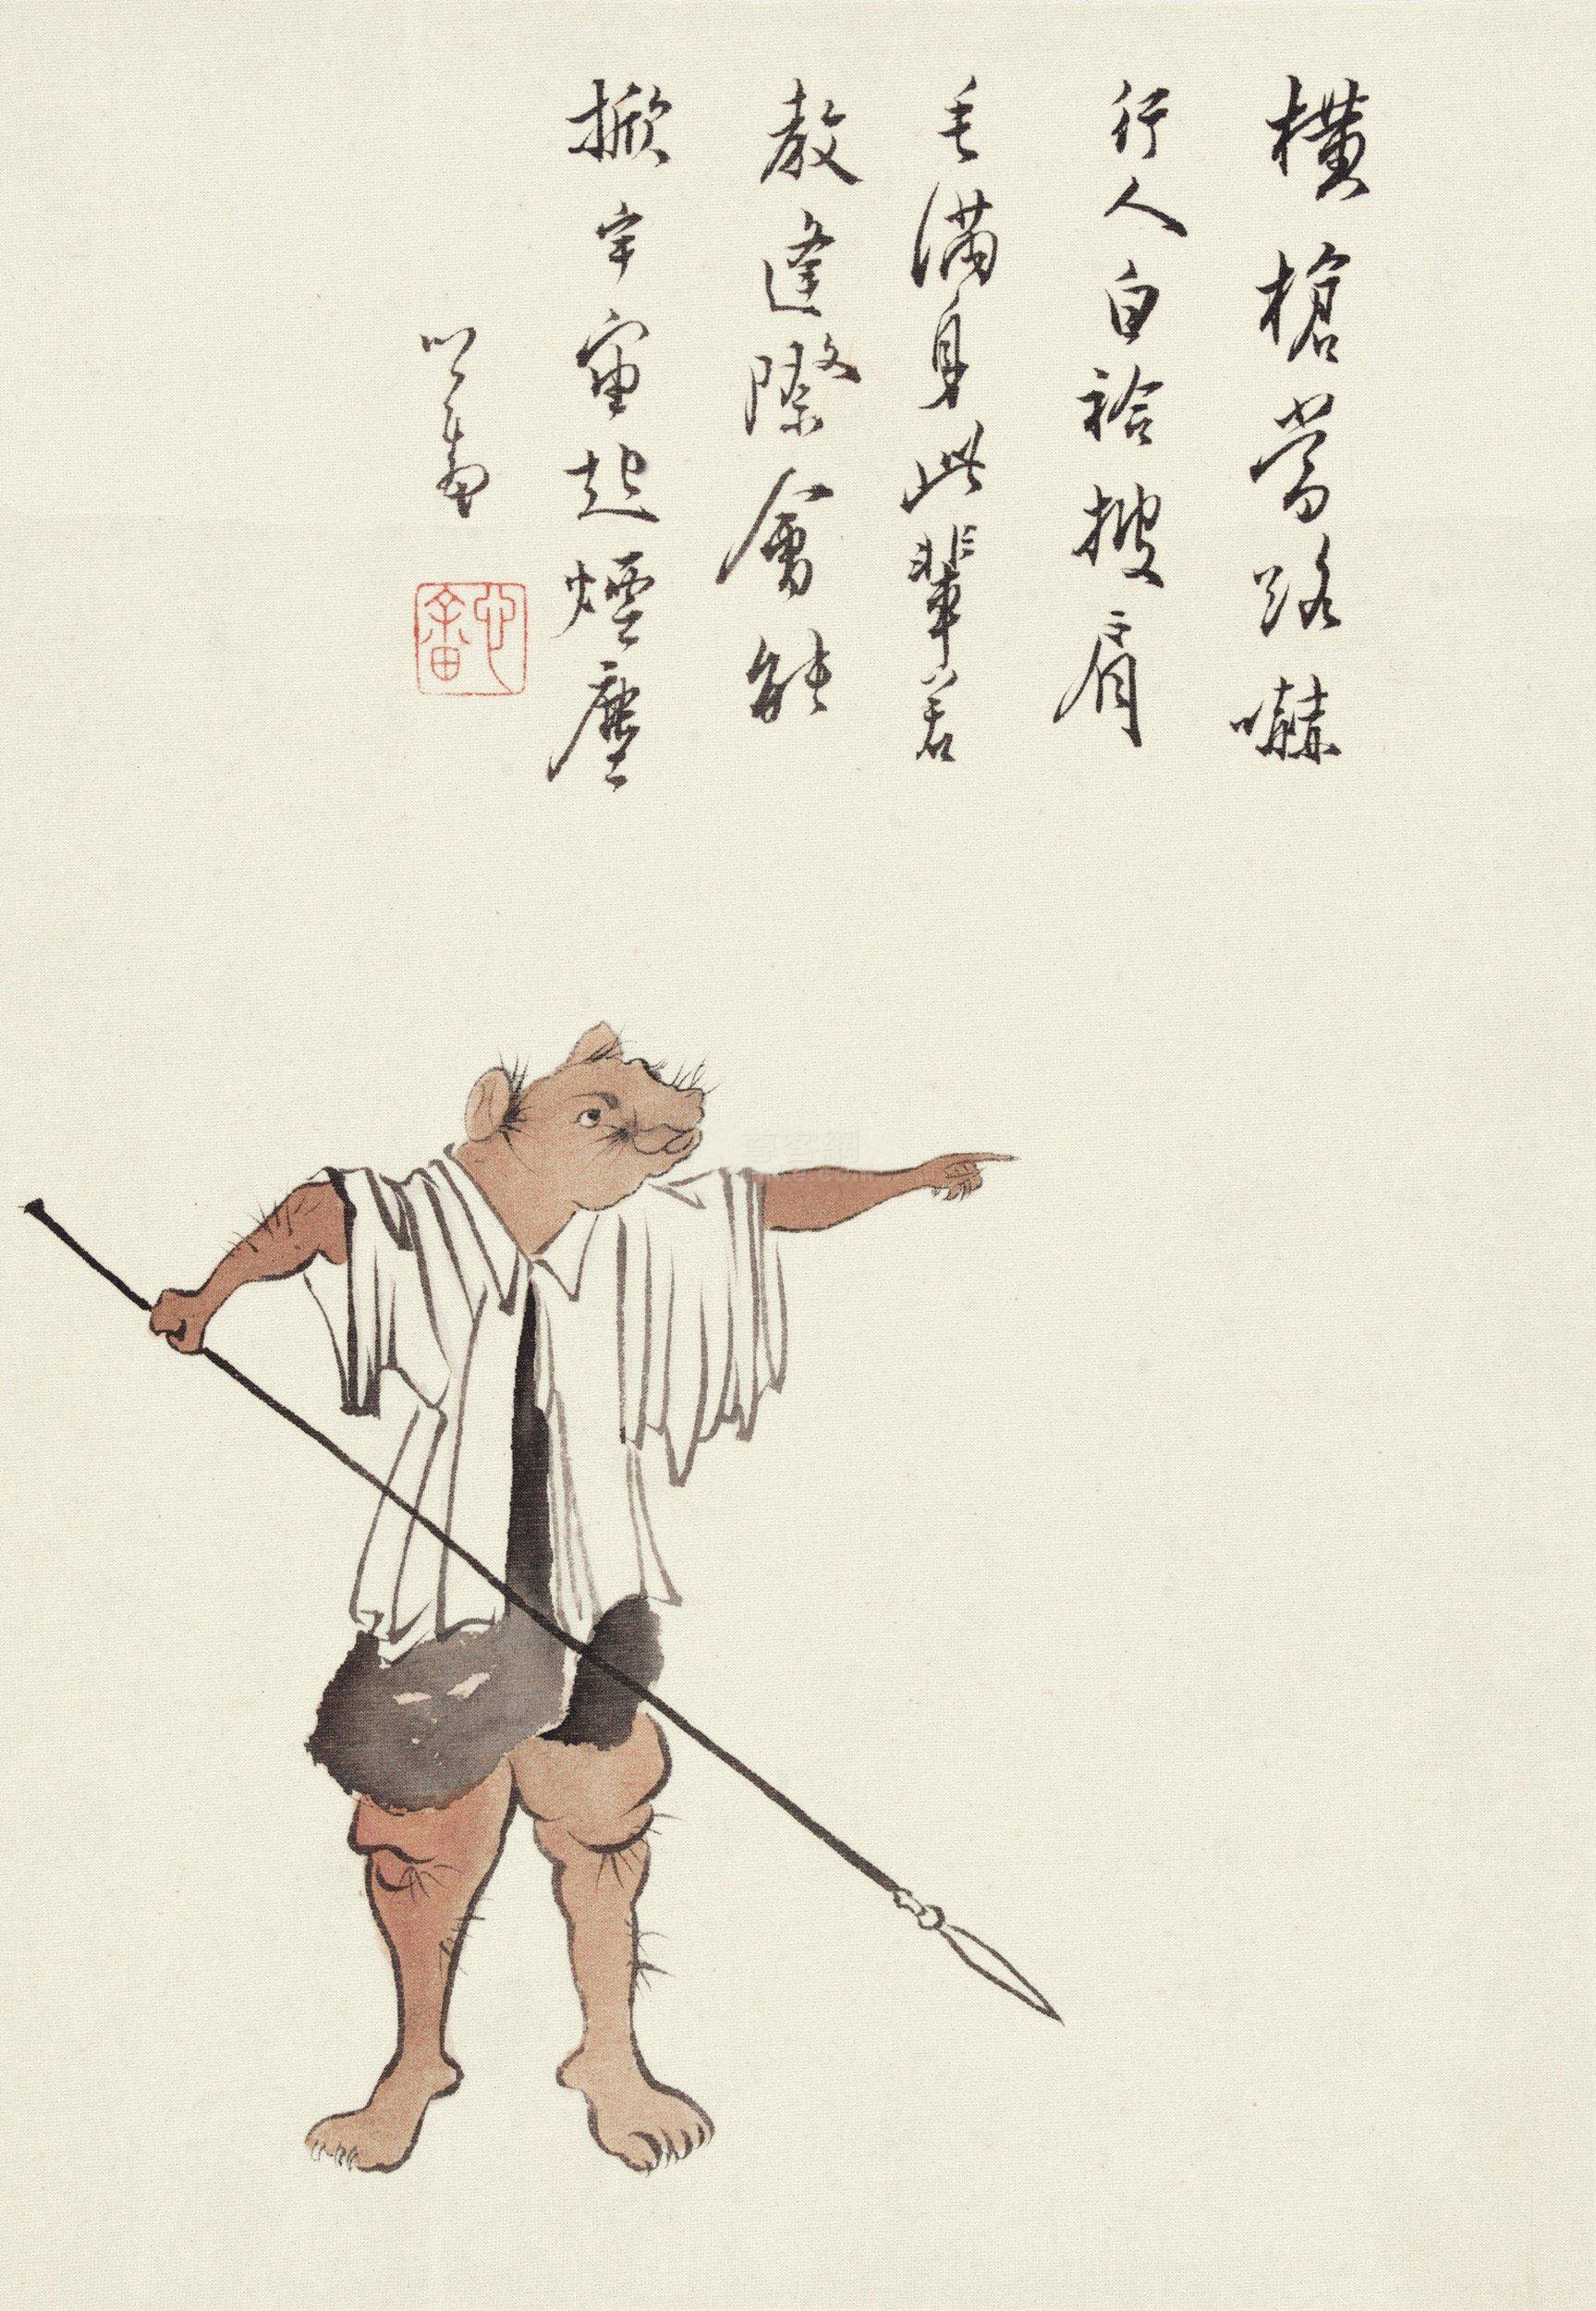 橫槍當路嚇
行人白袷披肩
毛滿身此輩若
教逢際會能
掀宇宙起煙塵
心畬
心畬